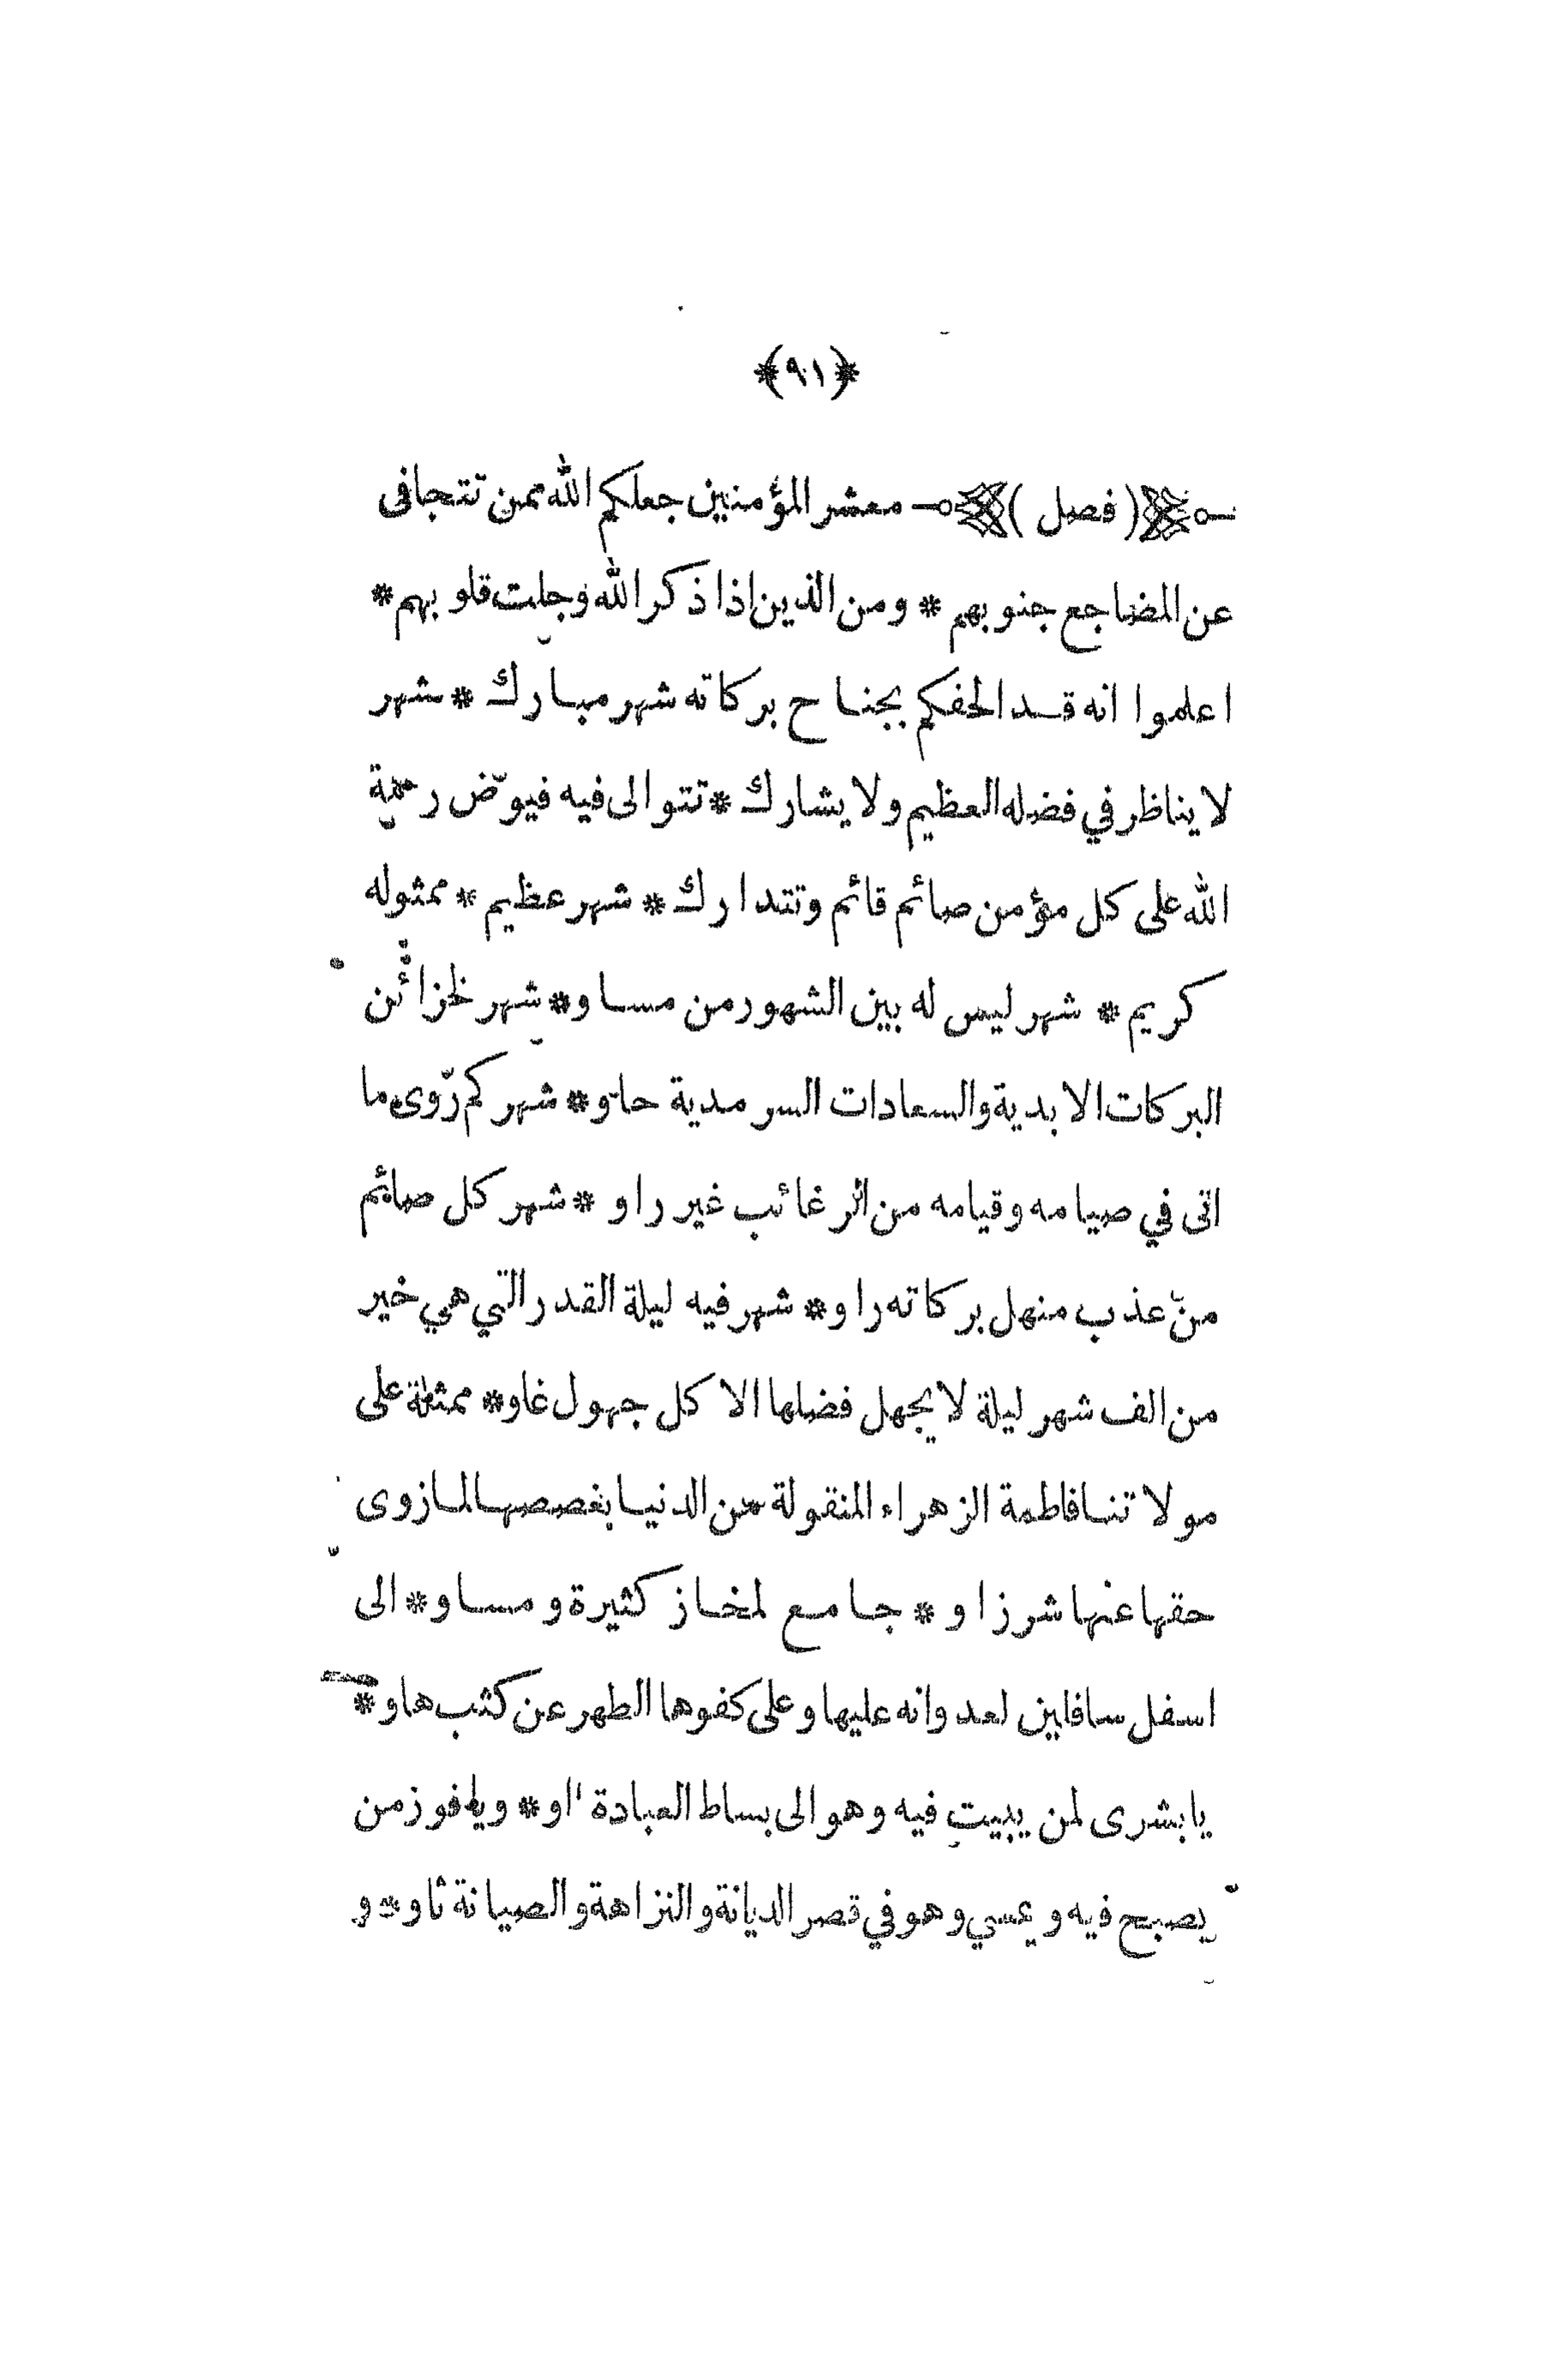 ﴿٩١﴾
( فصل ) معشر المؤمنين جعلكم الله ممن تتجافى
عن المضاجع جنوبهم * ومن الذين اذا ذكر الله وجلت قلوبهم *
اعلموا انه قد الحفكم بجناح بركاته شهر مبارك * شهر
لا يناظر في فضله العظيم ولا يشارك * تتوالى فيه فيوض رحمة
الله على كل مؤمن صائم قائم وتتدارك * شهر عظيم * ممثوله
كريم * شهر ليس له بين الشهور من مساو * شهر لخزائن
البركات الابدية والسعادات السرمدية حاو * شهر كم روى ما
اتى في صيامه وقيامه من الرغائب غير راو * شهر كل صائم
من عذب منهل بركاته راو * شهر فيه ليلة القدر التي هي خير
من الف شهر ليلة لا يجهل فضلها الا كل جهول غاو * ممثلة على
مولاتنا فاطمة الزهراء المنقولة من الدنيا بغصصها لما زوى
حقها عنها شر زاو * جامع لمخاز كثيرة ومساو * الى
اسفل سافلين لعدوانه عليها وعلى كفوها الطهر عن كثب هاو *
يا بشرى لمن يبيت فيه وهو الى بساط العبادة او * ويا فوز من
يصبح فيه ويمسي وهو في قصر الديانة والنزاهة والصيانة ثاو * و